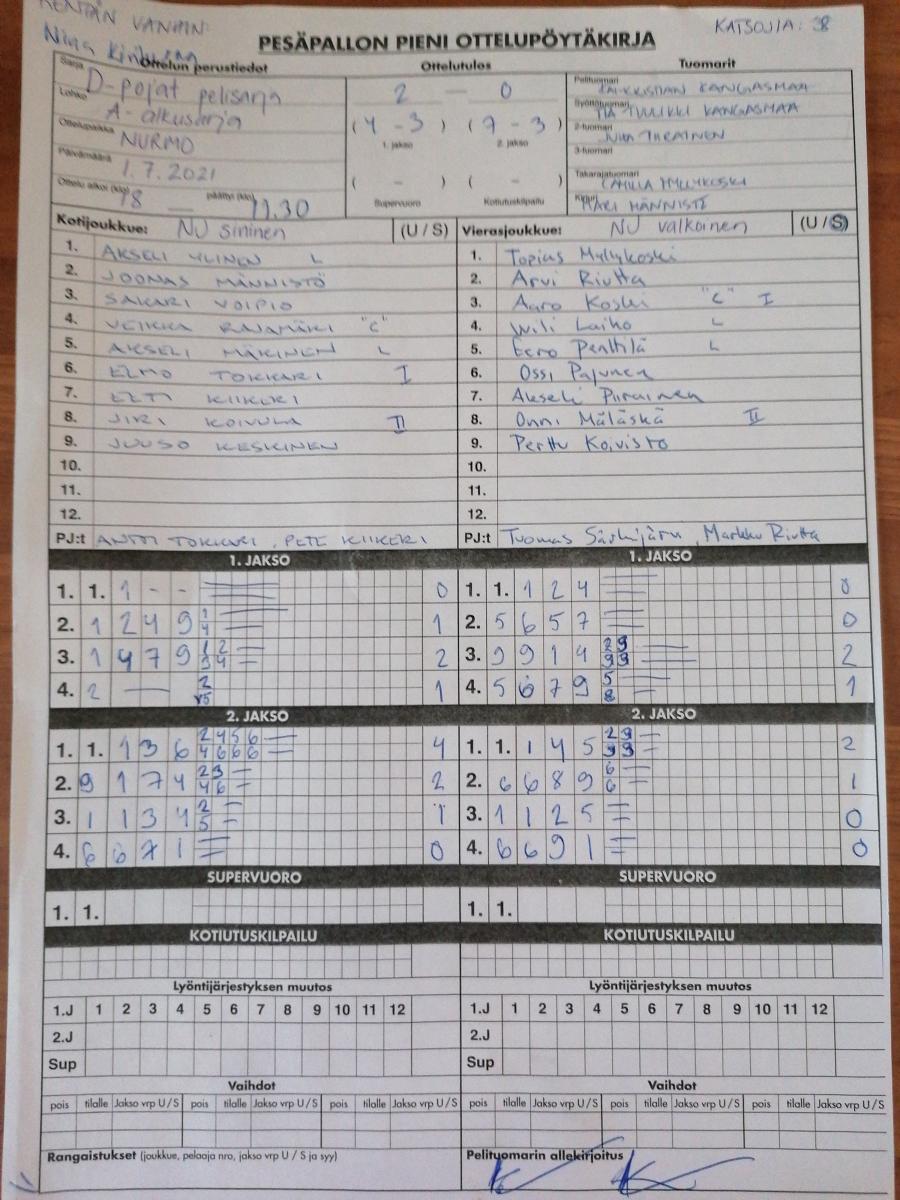 KENTÄN VANHIN:
KATSOJIA: 38
Nina
PESÄPALLON PIENI OTTELUPÖYTÄKIRJA
Sarja Ottelun perustiedot
D-pojat pelisarja
Lohko A-alkusarja
Ottelupaikka NURMO
Päivämäärä 1.7.2021
Ottelu alkoi (klo) 18 — päättyi (klo) 19.30
Ottelutulos
2 — 0
(4 - 3) (7 - 3)
1. jakso 2. jakso
( - ) ( - )
Supervuoro Kotiutuskilpailu
Tuomarit
Pelituomari KAI-KRISTIAN KANGASMAA
Syöttötuomari TUULIKKI KANGASMAA
2-tuomari JUHA PIIRAINEN
3-tuomari
Takarajatuomari CAMILLA MYLLYKOSKI
Kirjuri MARI MÄNNISTÖ
Kotijoukkue: NU sininen (U / S)
1. AKSELI YLINEN L
2. JOONAS MÄNNISTÖ
3. SAKARI VOIPIO
4. VEIKKA RAJAMÄKI "C"
5. AKSELI MÄKINEN L
6. ELMO TOKKARI I
7. EETI KIIKERI
8. JIRI KOIVULA II
9. JUUSO KESKINEN
10.
11.
12.
PJ:t ANTTI TOKKARI, PETE KIIKERI
Vierasjoukkue: NU valkoinen (U / S)
1. Topias Myllykoski
2. Arvi Riutta
3. Aaro Koski "C" I
4. Wili Laiho L
5. Eero Penttilä L
6. Ossi Pajunen
7. Akseli Piirainen
8. Onni Mäläskä II
9. Perttu Koivisto
10.
11.
12.
PJ:t Tuomas Särkijärvi, Markku Riutta
1. JAKSO
1. 1. 1 - - 0
2. 1 2 4 9 1 1
4
3. 1 4 7 9 1 2 2
3 4
4. 2 — 2 1
5
2. JAKSO
1. 1. 1 3 6 2 4 5 6 4
4 6 6 6
2. 9 1 7 4 2 3 2
4 6
3. 1 1 3 4 2 1
5
4. 6 6 7 1 0
SUPERVUORO
1. 1.
KOTIUTUSKILPAILU
Lyöntijärjestyksen muutos
1.J 1 2 3 4 5 6 7 8 9 10 11 12
2.J
Sup
Vaihdot
pois tilalle Jakso vrp U / S pois tilalle Jakso vrp U / S pois tilalle Jakso vrp U / S
Rangaistukset (joukkue, pelaaja nro, jakso vrp U / S ja syy)
1. JAKSO
1. 1. 1 2 4 0
2. 5 6 5 7 0
3. 9 9 1 4 2 9 2
9 9
4. 5 6 7 9 5 1
8
2. JAKSO
1. 1. 1 4 5 2 9 2
9 9
2. 6 6 8 9 6 1
6
3. 1 1 2 5 0
4. 6 6 9 1 0
SUPERVUORO
1. 1.
KOTIUTUSKILPAILU
Lyöntijärjestyksen muutos
1.J 1 2 3 4 5 6 7 8 9 10 11 12
2.J
Sup
Vaihdot
pois tilalle Jakso vrp U / S pois tilalle Jakso vrp U / S pois tilalle Jakso vrp U / S
Pelituomarin allekirjoitus